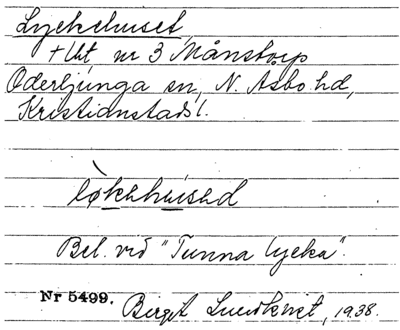 Lyckehuset
+ Lht nr 3 Månstorp
Oderljunga sn, N. Åsbo hd,
Kristianstads l.
Bel. vid "Tunna lycka".
Nr 5499. Bergit Lundkvist, 1938.